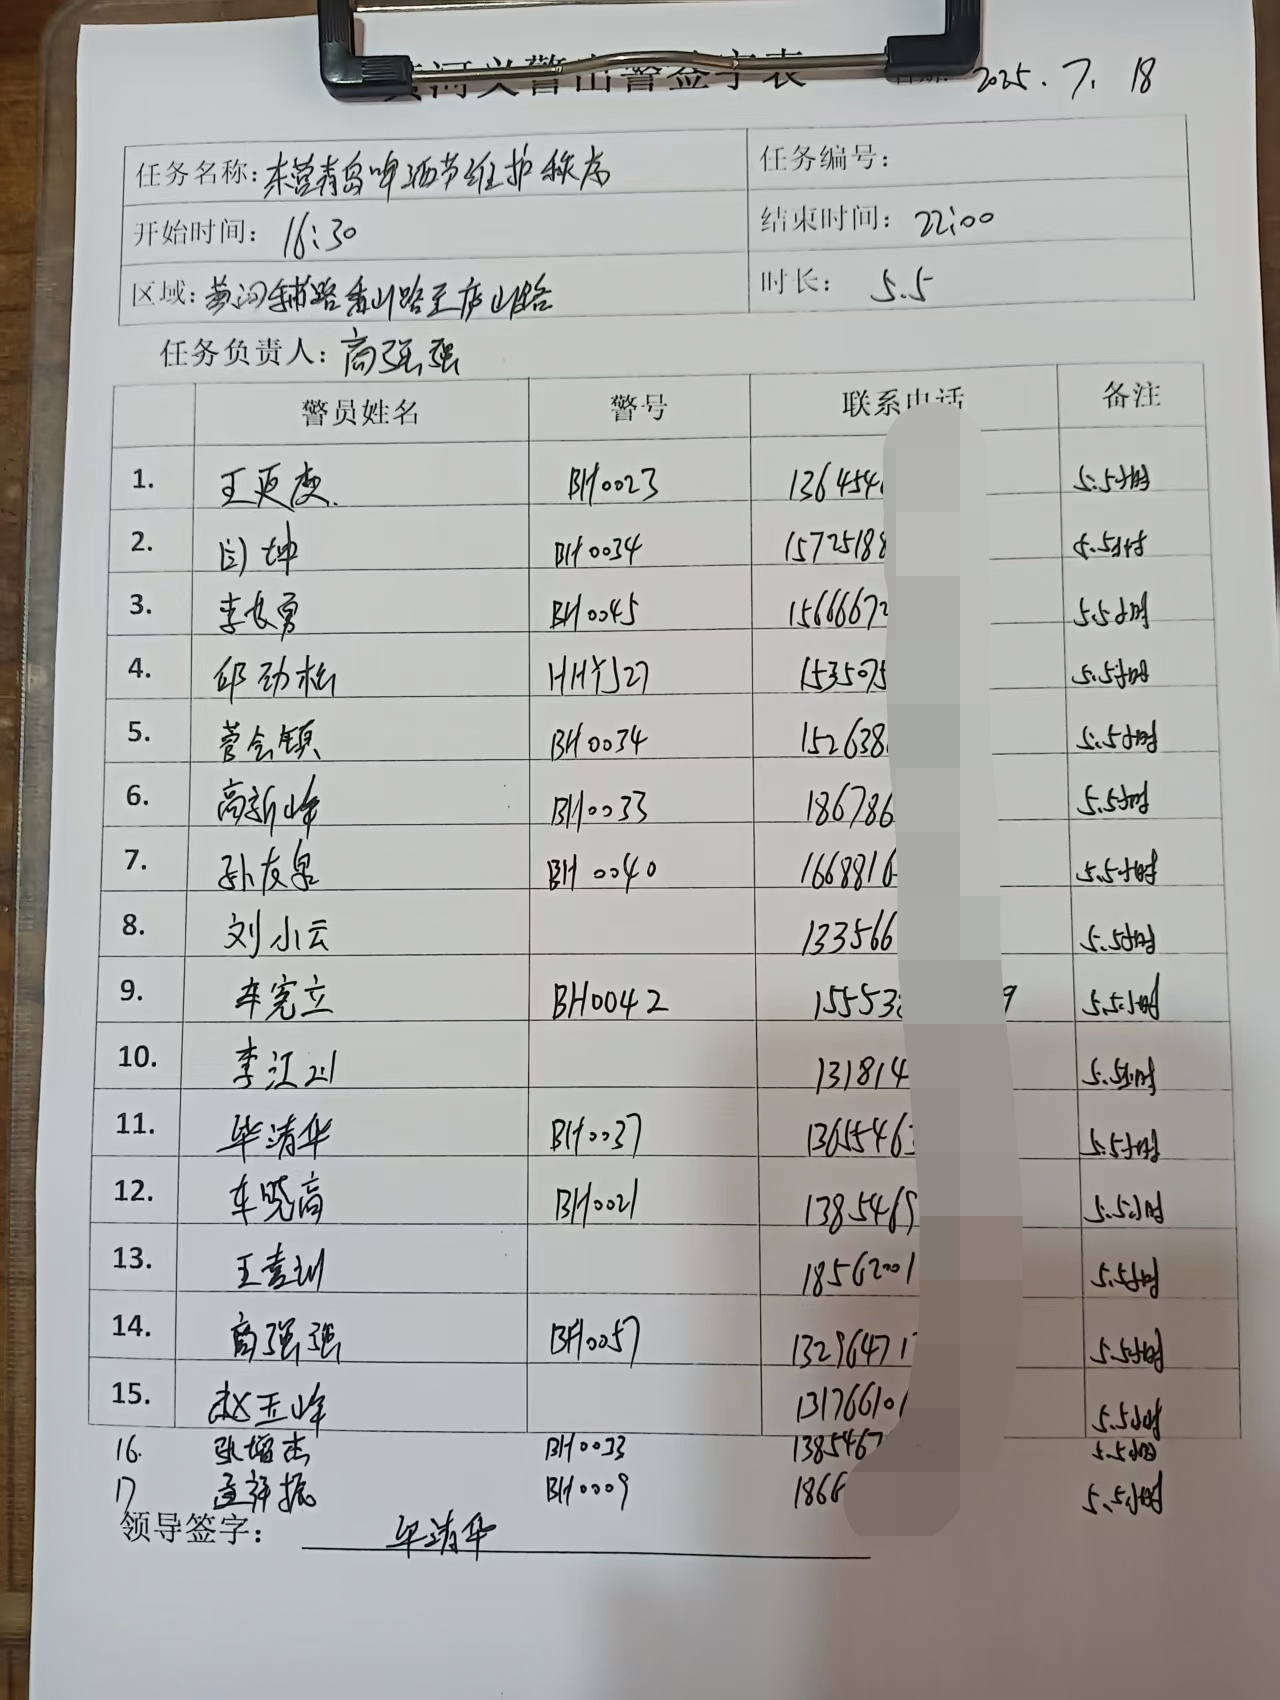 黄河义警出警签字表 日期: 2025.7.18
任务名称: 东营青岛啤酒节维护秩序 任务编号:
开始时间: 16:30 结束时间: 22:00
区域: 黄河辅路香山路至庐山路 时长: 5.5
任务负责人: 高强强
警员姓名 警号 联系电话 备注
1. 王更庆 BH0023 1364546 5.5小时
2. 闫坤 BH0034 15725188 5.5小时
3. 李友勇 BH0045 15666672 5.5小时
4. 邱劲松 HHYJ27 1535075 5.5小时
5. 菅会镇 BH0034 152638 5.5小时
6. 高新峰 BH0033 186786 5.5小时
7. 孙友泉 BH0040 1668816 5.5小时
8. 刘小云 133566 5.5小时
9. 车宪立 BH0042 15553 9 5.5小时
10. 李江 131814 5.5小时
11. 毕清华 BH0037 1365546 5.5小时
12. 车晓高 BH0021 1385469 5.5小时
13. 王 18562001 5.5小时
14. 高强强 BH0057 13296471 5.5小时
15. 赵玉峰 13176610 5.5小时
16. 张增杰 BH0033 1385467 5.5小时
17 孟祥振 BH0009 1866 5.5小时
领导签字: 毕清华